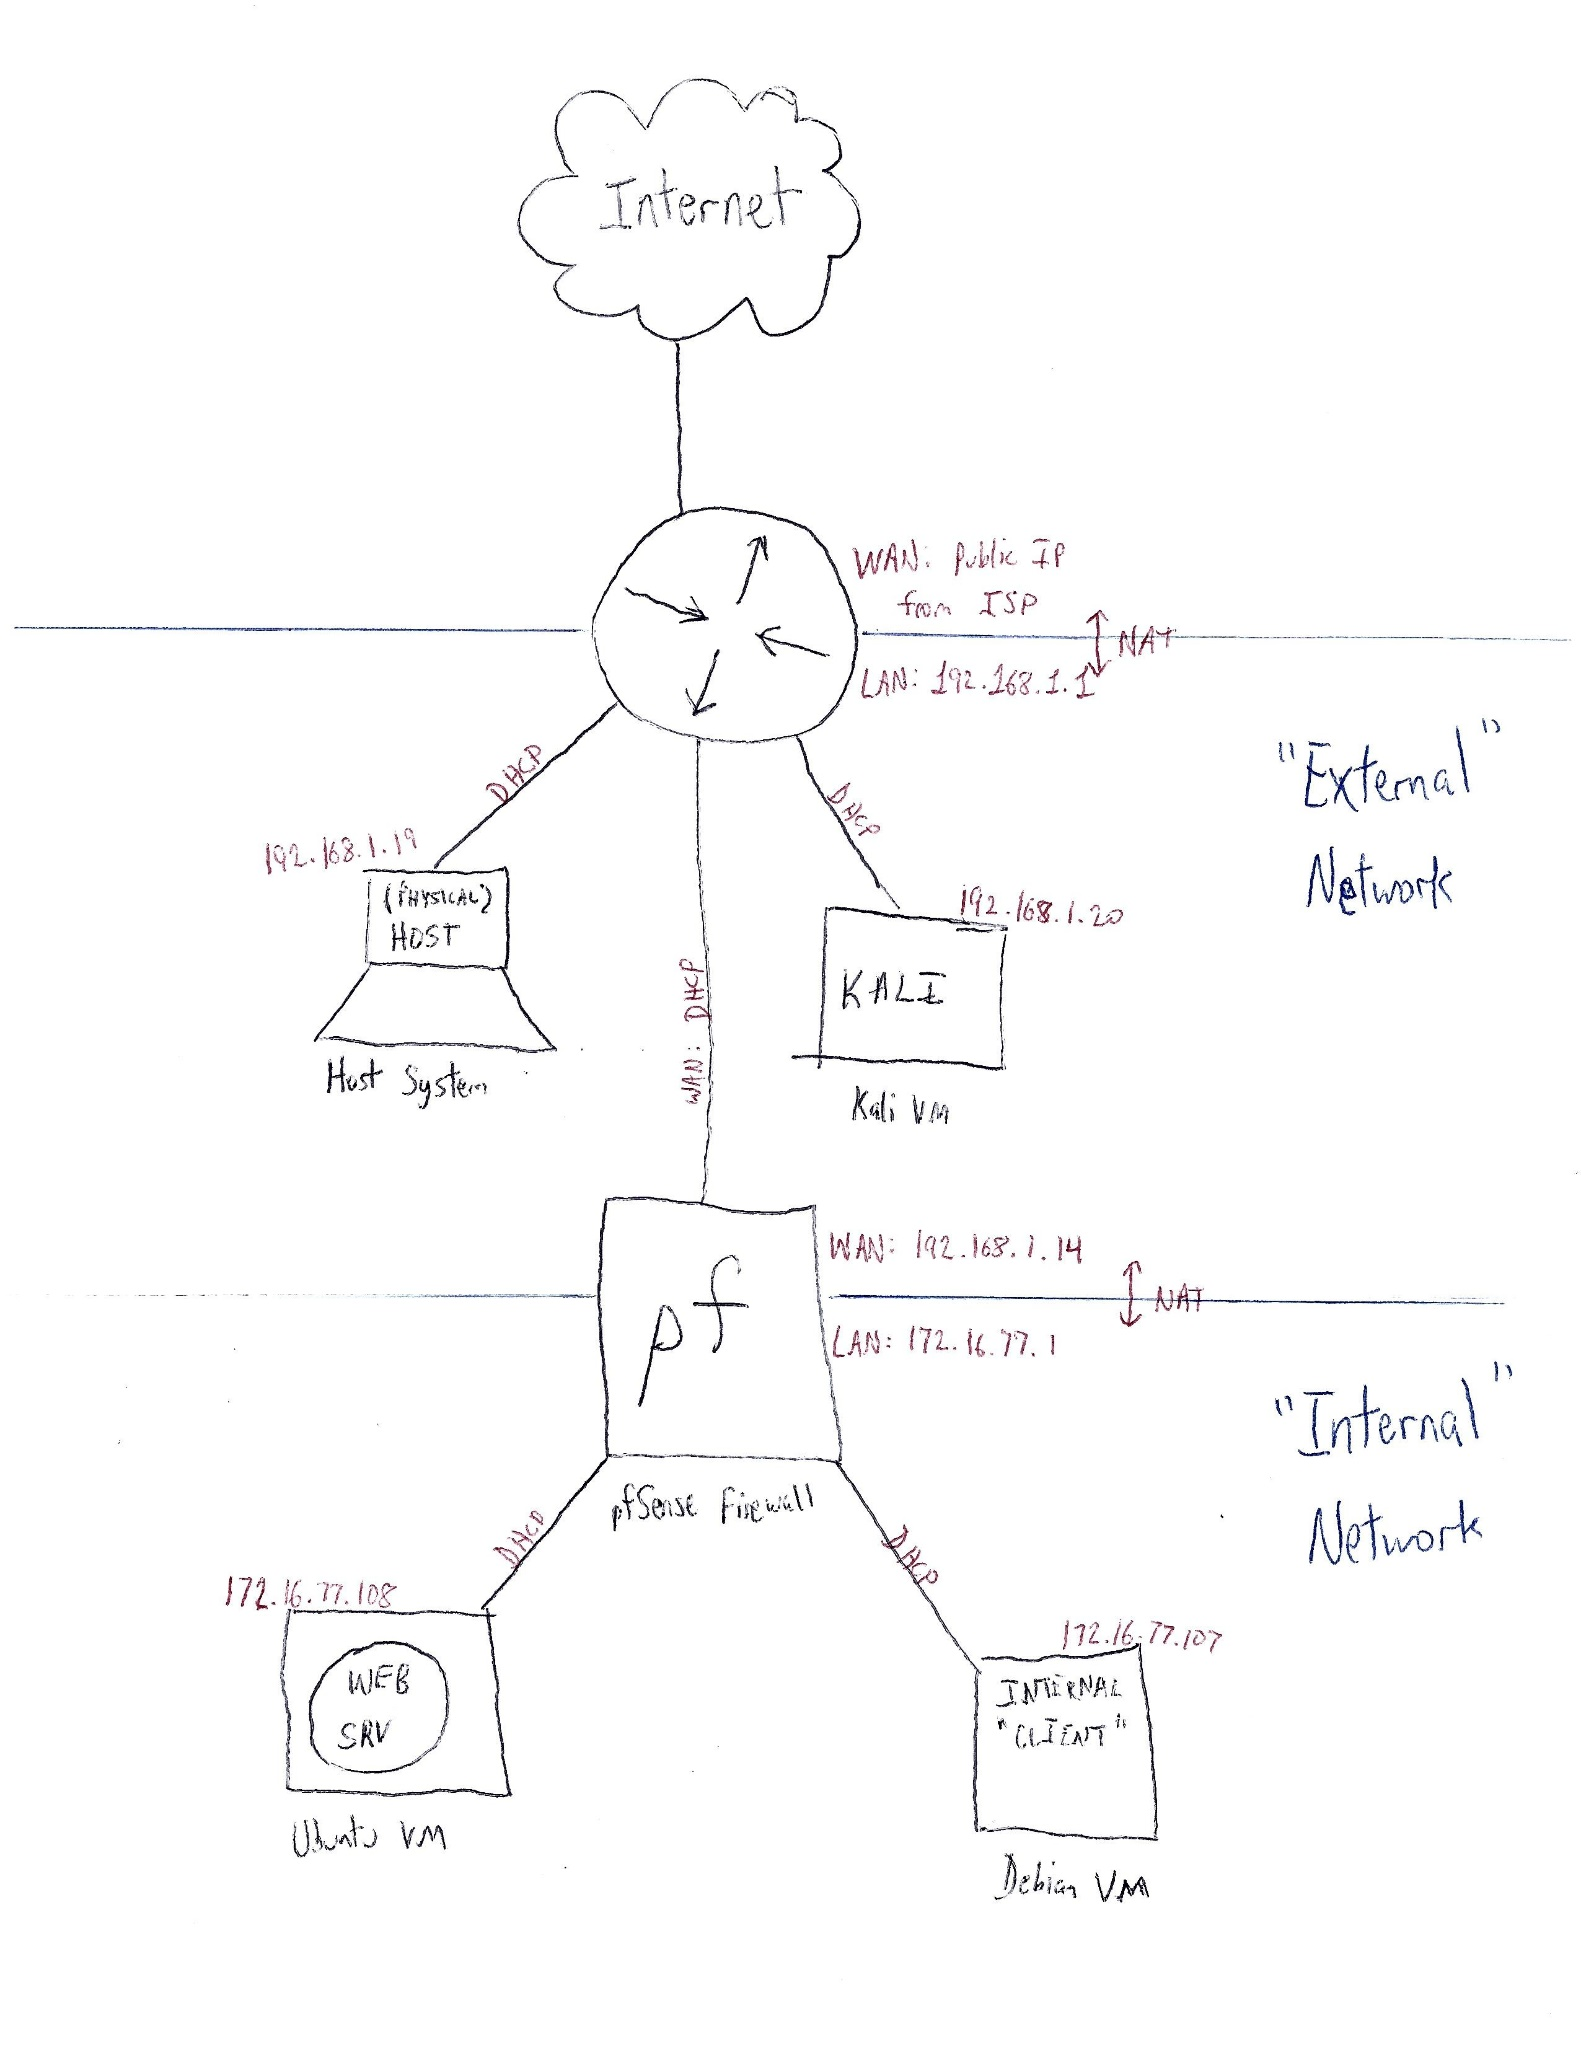 Internet
WAN: Public IP
from ISP
NAT
LAN: 192.168.1.1
"External"
Network
DHCP
DHCP
192.168.1.19
(PHYSICAL)
HOST
Host System
192.168.1.20
KALI
Kali VM
WAN: DHCP
WAN: 192.168.1.14
NAT
LAN: 172.16.77.1
pf
pfSense Firewall
"Internal"
Network
DHCP
DHCP
172.16.77.108
WEB
SRV
Ubuntu VM
172.16.77.107
INTERNAL
"CLIENT"
Debian VM